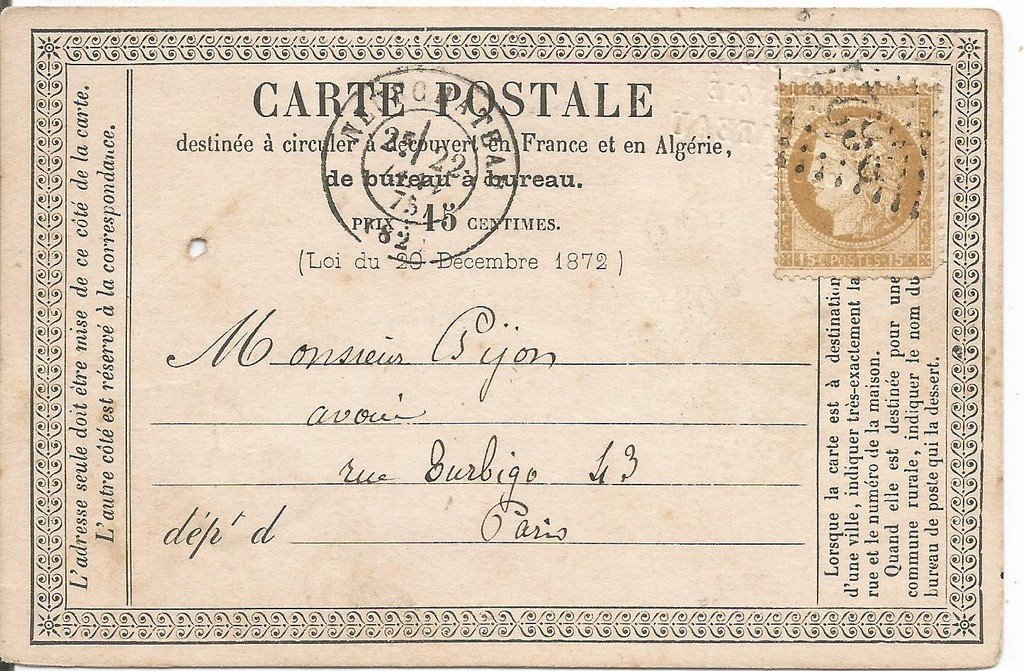 CARTE POSTALE
destinée à circuler à découvert en France et en Algérie,
de bureau à bureau.
PRIX : 15 CENTIMES.
(Loi du 20 Décembre 1872)
NEUFCHATEAU
22
75
(82)
15 C. POSTES 15 C.
Monsieur Pijon
avoué
rue Turbigo 43
dép' d Paris
L'adresse seule doit être mise de ce côté de la carte.
L'autre côté est réservé à la correspondance.
Lorsque la carte est à destination
d'une ville, indiquer très-exactement la
rue et le numéro de la maison.
Quand elle est destinée pour une
commune rurale, indiquer le nom du
bureau de poste qui la dessert.